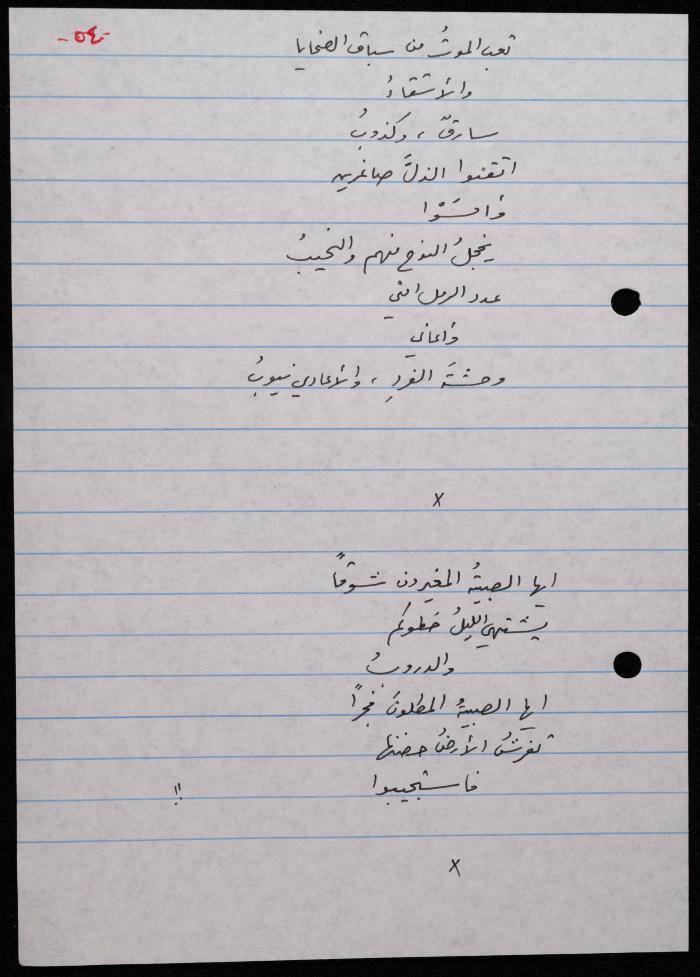 -٥٤-
تعب الموتُ من سباق الضحايا
والأشقاءُ
سارقٌ ، وكذوبُ
اتقنوا الذلَّ صاغرين
يخجلُ النوح منهم والنحيبُ
عدد الرمل امتي
وأعاني
وحشتَه الفردِ ، والأعادي نيوبُ
x
ايها الصبيةُ المغيرون شوقاً
يشتهي الليلُ خطوكم
والدروبُ
ايها الصبيةُ المطلونَ فجراً
تفرشُ الأرضُ حضنها
فاستجيبوا !!
x